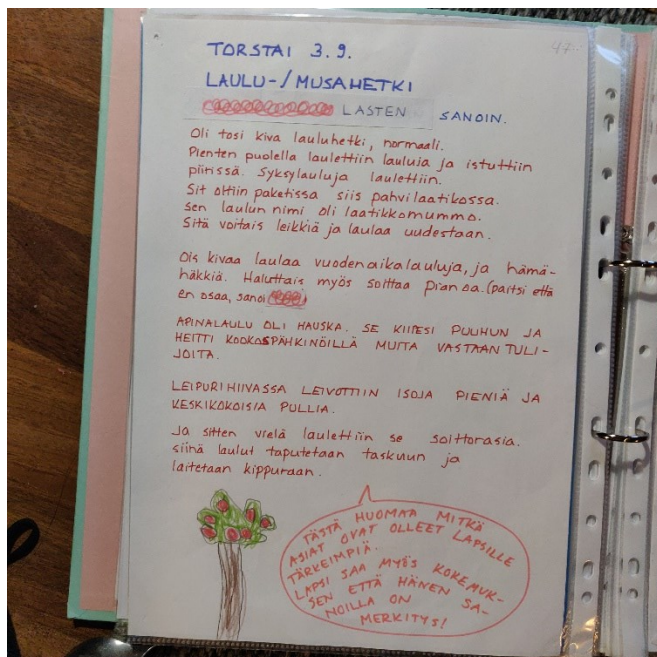 47.
TORSTAI 3.9.
LAULU-/MUSAHETKI
LASTEN SANOIN.
Oli tosi kiva lauluhetki, normaali.
Pienten puolella laulettiin lauluja ja istuttiin
piirissä. Syksylauluja laulettiin.
Sit oltiin paketissa siis pahvilaatikossa.
Sen laulun nimi oli laatikkomummo.
Sitä voitais leikkiä ja laulaa uudestaan.
Ois kivaa laulaa vuodenaikalauluja, ja hämä-
häkkiä. Haluttais myös soittaa pianoa. (paitsi että
en osaa, sanoi
APINALAULU OLI HAUSKA. SE KIIPESI PUUHUN JA
HEITTI KOOKOSPÄHKINÖILLÄ MUITA VASTAANTULI-
JOITA.
LEIPURI HIIVASSA LEIVOTTIIN ISOJA PIENIÄ JA
KESKIKOKOISIA PULLIA.
Ja sitten vielä laulettiin se soittorasia.
siinä laulut taputetaan taskuun ja
laitetaan kippuraan.
TÄSTÄ HUOMAA MITKÄ
ASIAT OVAT OLLEET LAPSILLE
TÄRKEIMPIÄ.
LAPSI SAA MYÖS KOKEMUK-
SEN ETTÄ HÄNEN SA-
NOILLA ON
MERKITYS!